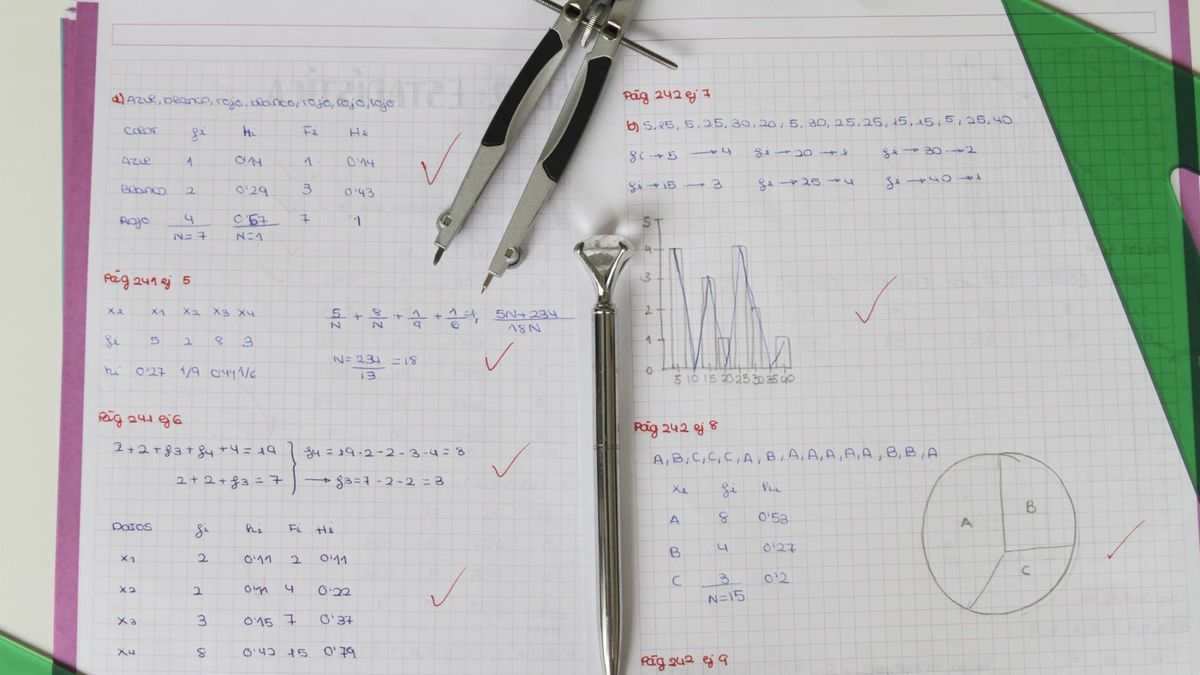 a) Azul, blanco, rojo, blanco, rojo, rojo, rojo
Color fi hi Fi Hi
Azul 1 0'14 1 0'14
Blanco 2 0'29 3 0'43
Rojo 4 0'57 7 1
N=7 N=1
Pág 241 ej 5
xi x1 x2 x3 x4
fi 5 2 8 3
hi 0'27 1/9 0'44 1/6
5/N + 8/N + 1/9 + 1/6 = 1, 5N+234/18N
N=234/13 = 18
Pág 241 ej 6
2+2+f3+f4+4=19 f4=19-2-2-3-4=8
2+2+f3=7 → f3=7-2-2=3
DATOS fi hi Fi Hi
x1 2 0'11 2 0'11
x2 2 0'11 4 0'22
x3 3 0'15 7 0'37
x4 8 0'42 15 0'79
Pág 242 ej 7
b) 5, 15, 5, 25, 30, 20, 5, 30, 25, 25, 15, 15, 5, 25, 40
fi → 5 → 4 fi → 20 → 1 fi → 30 → 2
fi → 15 → 3 fi → 25 → 4 fi → 40 → 1
5
4
3
2
1
0
5 10 15 20 25 30 35 40
Pág 242 ej 8
A, B, C, C, C, A, B, A, A, A, A, A, B, B, A
xi fi hi
A 8 0'53
B 4 0'27
C 3 0'2
N=15
A
B
C
Pág 242 ej 9